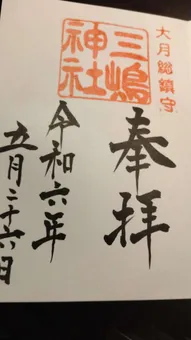 大月総鎮守
三嶋神社
奉拝
令和六年
五月二十六日